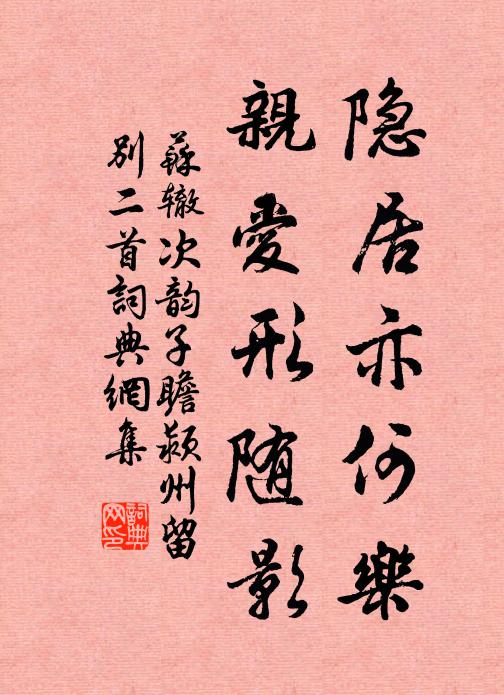 隐居亦何樂
親愛形随影
蘇辙次韵子瞻颍州留
别二首詞典網集
詞典
网印